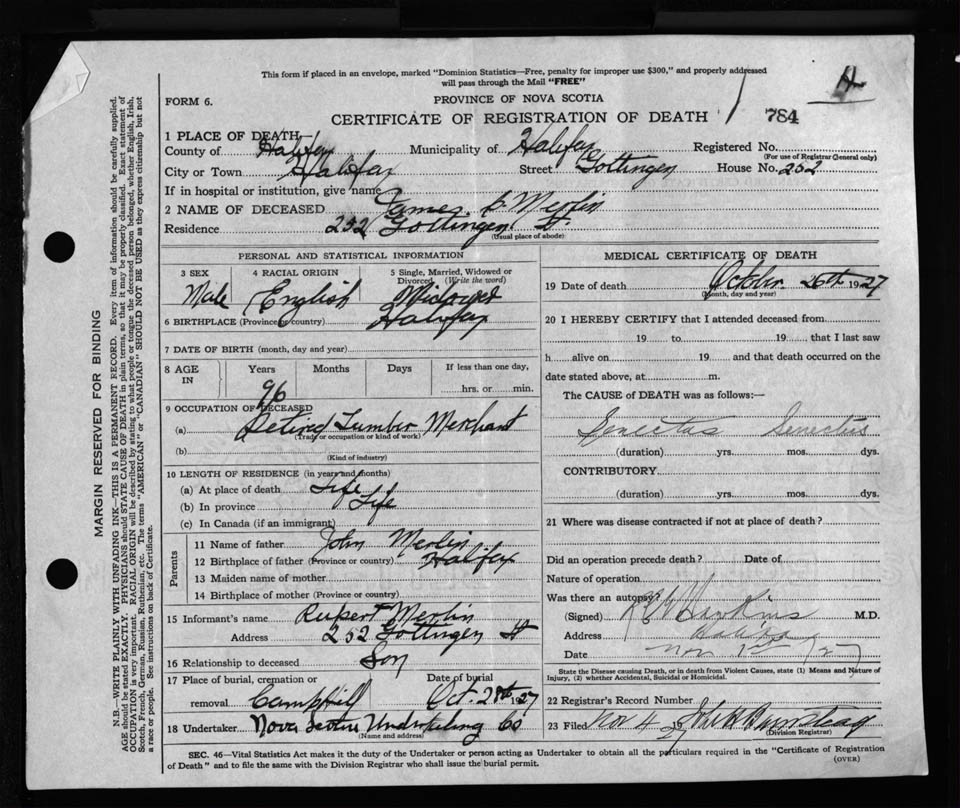 This form if placed in an envelope, marked "Dominion Statistics—Free, penalty for improper use $300," and properly addressed
will pass through the Mail "FREE"
FORM 6.
PROVINCE OF NOVA SCOTIA
CERTIFICATE OF REGISTRATION OF DEATH
784
1 PLACE OF DEATH—
County of Halifax Municipality of Halifax Registered No.
(For use of Registrar General only)
City or Town Halifax Street Gottingen House No. 252
If in hospital or institution, give name
2 NAME OF DECEASED James Merlin
Residence 252 Gottingen St.
(Usual place of abode)
PERSONAL AND STATISTICAL INFORMATION
3 SEX 4 RACIAL ORIGIN 5 Single, Married, Widowed or
Divorced (Write the word)
Male English Widower
6 BIRTHPLACE (Province or country) Halifax
7 DATE OF BIRTH (month, day and year)
8 AGE IN Years Months Days If less than one day,
hrs. or min.
96
9 OCCUPATION OF DECEASED
(a) Retired Lumber Merchant
(Trade or occupation or kind of work)
(b)
(Kind of industry)
10 LENGTH OF RESIDENCE (in years and months)
(a) At place of death Life
(b) In province Life
(c) In Canada (if an immigrant)
Parents
11 Name of father John Merlin
12 Birthplace of father (Province or country) Halifax
13 Maiden name of mother
14 Birthplace of mother (Province or country)
15 Informant's name Rupert Merlin
Address 252 Gottingen St
16 Relationship to deceased Son
17 Place of burial, cremation or removal Date of burial
Camphill Oct. 28th 1927
18 Undertaker Nova Scotia Undertaking Co
(Name and address)
MEDICAL CERTIFICATE OF DEATH
19 Date of death October 26th 1927
(Month, day and year)
20 I HEREBY CERTIFY that I attended deceased from
19 to 19 that I last saw
h alive on 19 and that death occurred on the
date stated above, at m.
The CAUSE of DEATH was as follows:—
Senectus Senectus
(duration) yrs. mos. dys.
CONTRIBUTORY
(duration) yrs. mos. dys.
21 Where was disease contracted if not at place of death?
Did an operation precede death? Date of
Nature of operation
Was there an autopsy?
(Signed) M.D.
Address Halifax
Date Nov 1st /27
State the Disease causing Death, or in death from Violent Causes, state (1) Means and Nature of
Injury, (2) whether Accidental, Suicidal or Homicidal.
22 Registrar's Record Number
23 Filed Nov 4 19 27
(Division Registrar)
SEC. 46—Vital Statistics Act makes it the duty of the Undertaker or person acting as Undertaker to obtain all the particulars required in the "Certificate of Registration
of Death" and to file the same with the Division Registrar who shall issue the burial permit.
(OVER)
MARGIN RESERVED FOR BINDING
N.B.—WRITE PLAINLY WITH UNFADING INK—THIS IS A PERMANENT RECORD. Every item of information should be carefully supplied.
AGE should be stated EXACTLY. PHYSICIANS should STATE CAUSE OF DEATH in plain terms, so that it may be properly classified. Exact statement of
OCCUPATION is very important. RACIAL ORIGIN will be described by stating to what people or tongue the deceased person belonged, whether English, Irish,
Scotch, French, German, Russian, Ruthenian, etc. The terms "AMERICAN" or "CANADIAN" SHOULD NOT BE USED as they express citizenship but not
a race or people. See instructions on back of Certificate.